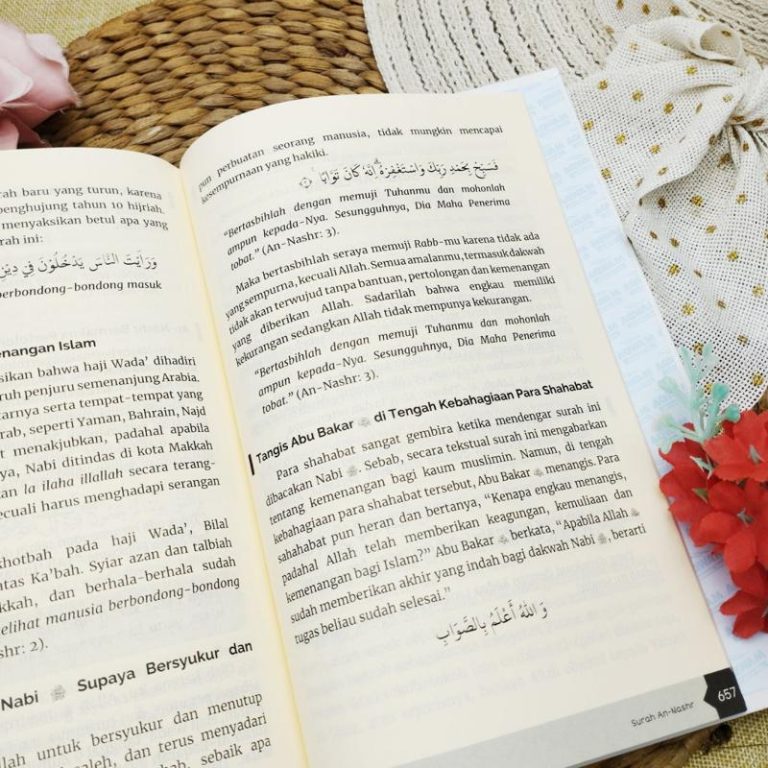 rah baru yang turun, karena
penghujung tahun 10 hijriah.
menyaksikan betul apa yang
rah ini:
وَرَاَيْتَ النَّاسَ يَدْخُلُوْنَ فِيْ دِيْنِ
berbondong-bondong masuk
nenangan Islam
sikan bahwa haji Wada’ dihadiri
ruh penjuru semenanjung Arabia.
tarnya serta tempat-tempat yang
rab, seperti Yaman, Bahrain, Najd
t menakjubkan, padahal apabila
ya, Nabi ditindas di kota Makkah
an la ilaha illallah secara terang-
ecuali harus menghadapi serangan
khotbah pada haji Wada’, Bilal
ntas Ka’bah. Syiar azan dan talbiah
kkah, dan berhala-berhala sudah
elihat manusia berbondong-bondong
shr: 2).
Nabi ﷺ Supaya Bersyukur dan
llah untuk bersyukur dan menutup
saleh, dan terus menyadari
kah, sebaik apa
pun perbuatan seorang manusia, tidak mungkin mencapai
kesempurnaan yang hakiki.
فَسَبِّحْ بِحَمْدِ رَبِّكَ وَاسْتَغْفِرْهُۗ اِنَّهٗ كَانَ تَوَّابًا ࣖ ٣
“Bertasbihlah dengan memuji Tuhanmu dan mohonlah
ampun kepada-Nya. Sesungguhnya, Dia Maha Penerima
tobat.” (An-Nashr: 3).
Maka bertasbihlah seraya memuji Rabb-mu karena tidak ada
yang sempurna, kecuali Allah. Semua amalanmu, termasuk dakwah
tidak akan terwujud tanpa bantuan, pertolongan dan kemenangan
yang diberikan Allah. Sadarilah bahwa engkau memiliki
kekurangan sedangkan Allah tidak mempunya kekurangan.
“Bertasbihlah dengan memuji Tuhanmu dan mohonlah
ampun kepada-Nya. Sesungguhnya, Dia Maha Penerima
tobat.” (An-Nashr: 3).
Tangis Abu Bakar di Tengah Kebahagiaan Para Shahabat
Para shahabat sangat gembira ketika mendengar surah ini
dibacakan Nabi ﷺ. Sebab, secara tekstual surah ini mengabarkan
tentang kemenangan bagi kaum muslimin. Namun, di tengah
kebahagiaan para shahabat tersebut, Abu Bakar menangis. Para
sahahabat pun heran dan bertanya, “Kenapa engkau menangis,
padahal Allah telah memberikan keagungan, kemuliaan dan
kemenangan bagi Islam?” Abu Bakar berkata, “Apabila Allah
sudah memberikan akhir yang indah bagi dakwah Nabi ﷺ, berarti
tugas beliau sudah selesai.”
وَاللهُ أَعْلَمُ بِالصَّوَابِ
Surah An-Nashr
657